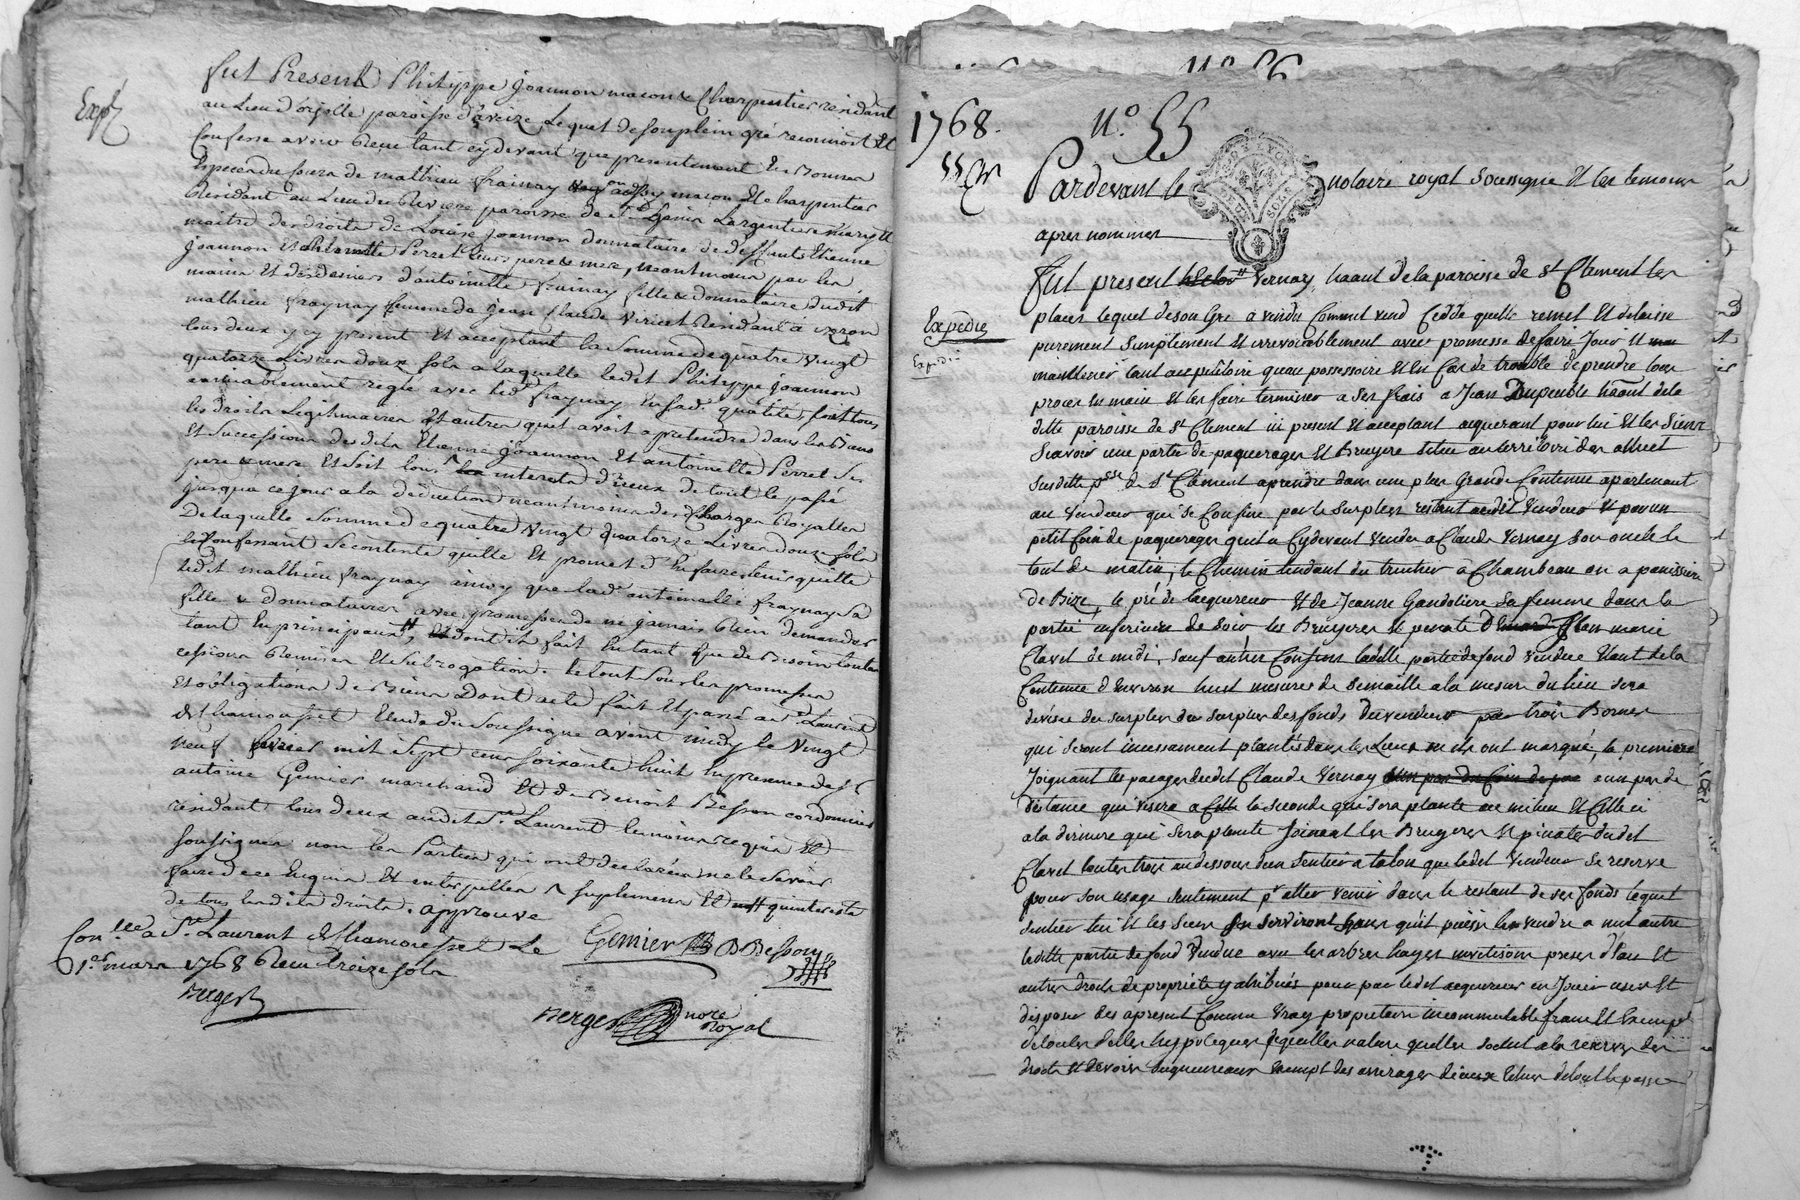 Expé
fut Present Philippe joannon macon & Charpentier residant
au Lieu d'orjolle paroisse d'aveize Lequel de son plein gré reconnoit Et
Confesse avoir Recu tant cydevant que presentement En Bonnes
Especes du sieur de mathieu frainay aussy macon Et charpentier
Résidant au Lieu du Riviere paroisse de St Genis Largentiere mary Et
maitre des droits de Louise joannon donnataire de deffunts Etienne
joannon Et antoinette Perret Leurs pere & mere, neantmoins par les
mains Et des deniers d'antoinette fraynay fille & donnataire dudit
mathieu fraynay femme de jean Claude Viricel Résidant a
tous deux y cy present Et acceptant la somme de quatre vingt
quatorze Livres douze sols a laquelle ledit Philippe joannon
amiablement reglé avec led. fraynay En sad. qualité, pour tous
les droits Legitimaires Et autres quil avoit a pretendre dans les Biens
Et Successions desdits Etienne joannon Et antoinette Perret Ses
pere & mere Et soit tous interets d'iceux de tout le passé
jusqua ce jour a la deduction neantmoins des charges Royalles
De laquelle somme de quatre vingt quatorze Livres douze sols
le Confessant Se contente quitte Et promet d'En faire tenir quitte
Ledit mathieu fraynay ainsy que lad. antoinette fraynay Sa
fille & donnataire avec promesse de ne jamais Rien demander
tant En principaux, dont il fait En tant que de Besoin toutes
cessions Remises Et Subrogation. Le tout sous les promesses
Et obligations de Biens Dont acte fait Et passé a St Laurent
de Chamousset Etude du Soussigné avant midy le Vingt
neuf fevrier mil Sept cens soixante huit En presence de Sr
antoine Gemier marchand Et de Benoit Besson cordonnier
residant tous deux audit St Laurent temoins requis Et
soussignés non les Parties qui ont declaré ne le savoir
faire de ce Enquis Et interpellés / suplement Et quinteste
de tous lesdits droits. approuvé
Conlle a St Laurent de Chamousset Le
1er mars 1768 Recu treize sols
Berger
Gemier B Besson
Berger nore
Royal
1768. N° 55
N° 56
Pardevant le notaire royal Soussigné Et les temoins
apres nommes
Expédié
Expedié
Fut present Vernay, haant de la paroisse de St Clement les
places lequel de son Gré a vendu Comme vend Cedde quitte remet Et delaisse
purement Simplement Et irrevocablement avec promesse de faire Jouir Et
maintenir tant au petitoire quau possessoire Et En Cas de trouble de prendre tous
proces En main Et les faire terminer a ses frais a Jean Dupeuble haant de la
ditte paroisse de St Clement ici present Et acceptant acquerant pour lui Et les Siens
Scavoir une partie de paquerages Et Bruyere située au territoire des
Susditte psse de St Clement a prendre dans une plus Grande Contenue apartenant
au vendeur qui se Confine par le surplus restant audit Vendeur Et par un
petit Coin de paquerages quil a Cydevant Vendu a Claude Vernay son oncle le
tout de matin, le Chemin tendant du a Chambeau ou a panissiere
de Bize, le pré de lacquereur Et de Jeanne Gandoliere Sa femme dans la
partie inferieure de Soir les Bruyeres Et pinate d'Jean marie
Clavel de midi, sauf autres Confins laditte partie de fond vendue Etant de la
Contenue d'Environ huit mesures de Semaille a la mesure du lieu sera
divisée du surplus du surplus des fonds du vendeur par trois Bornes
qui seront incessament plantés dans les lieux ou ils ont marqué, la premiere
Joignant les pacages dudit Claude Vernay a un pas de
distance qui visera a la seconde qui sera plantée au milieu Et Celle ci
a la derniere qui sera plantée Joignant les Bruyeres Et pinates dudit
Clavel toutes trois au dessous d'un Sentier a talon que ledit Vendeur se reserve
pour son usage seulement pr aller venir dans le restant de ses fonds lequel
sentier lui Et les Siens sen serviront sans quil puisse le vendre a nul autre
laditte partie de fond Vendue avec les arbres hayes invetison prises d'Eau Et
autres droits de proprieté y atribués pour par ledit acquereur en Jouir user Et
disposer des apresent Comme Vray proprietaire incommutable franc Et Exempt
de toutes dettes hypoteques de quelles nature quelles soient a la reserve des
droits Et devoirs Seigneuriaux Exempt des arrerages diceux de tout le passé